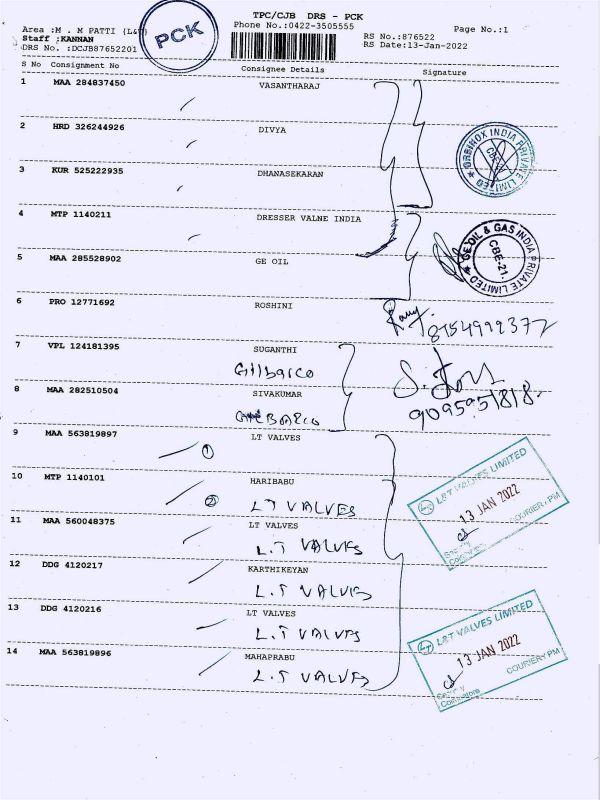 TPC/CJB DRS - PCK
Area :M . M PATTI (L&T) Phone No.:0422-3505555 Page No.:1
Staff :KANNAN RS No.:876522
DRS No. :DCJB87652201 RS Date:13-Jan-2022
PCK
S No Consignment No Consignee Details Signature
1 MAA 284837450 VASANTHARAJ
2 HRD 326244926 DIVYA
ORBINOX INDIA PRIVATE LIMITED
CBE
3 KUR 525222935 DHANASEKARAN
4 MTP 1140211 DRESSER VALNE INDIA
5 MAA 285528902 GE OIL
GE OIL & GAS INDIA PRIVATE LIMITED
CBE-21.
6 PRO 12771692 ROSHINI
8754999377
7 VPL 124181395 SUGANTHI
Gilbarco
8 MAA 282510504 SIVAKUMAR
9 MAA 563819897 LT VALVES
1
L&T VALVES LIMITED
13 JAN 2022
COURIER, PM
Security
Coimbatore
10 MTP 1140101 HARIBABU
2 LT VALVES
11 MAA 560048375 LT VALVES
L.T VALVES
12 DDG 4120217 KARTHIKEYAN
L.T VALVES
13 DDG 4120216 LT VALVES
L.T VALVES
L&T VALVES LIMITED
13 JAN 2022
COURIER, PM
Security
Coimbatore
14 MAA 563819896 MAHAPRABU
L.T VALVES